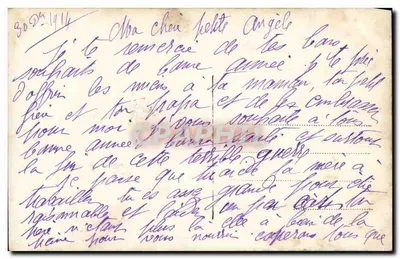 30 Dbr 1914
Ma chère petite Angèle
Je te remercie de tes bons
souhaits de bonne année je te prie
d'offrir les miens à ta maman, ton petit
frère et ton papa et de les embrasser
pour moi. Je vous souhaite à tous
bonne année, bonne santé et surtout
la fin de cette terrible guerre
Je pense que tu aides ta mère à
travailler tu es assez grande pour être
raisonnable et aider un peu
n'étant plus là elle a besoin de la
pour vous nourrir espérons tous que